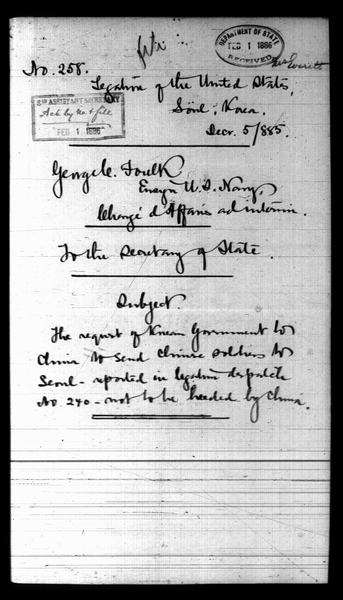 file
DEPARTMENT OF STATE
FEB 1 1886
RECEIVED
Mr Everett
No. 258.
Legation of the United States,
Söul, Korea.
Decr. 5/885.
3RD ASSISTANT SECRETARY
Ack by No & file
FEB 1 1886
George C. Foulk
Ensign U.S. Navy,
Chargé d'Affaires ad interim.
To the Secretary of State.
Subject.
The request of Korean Government to
China to send Chinese soldiers to
Seoul - reported in legation despatch
No. 240 - not to be heeded by China.